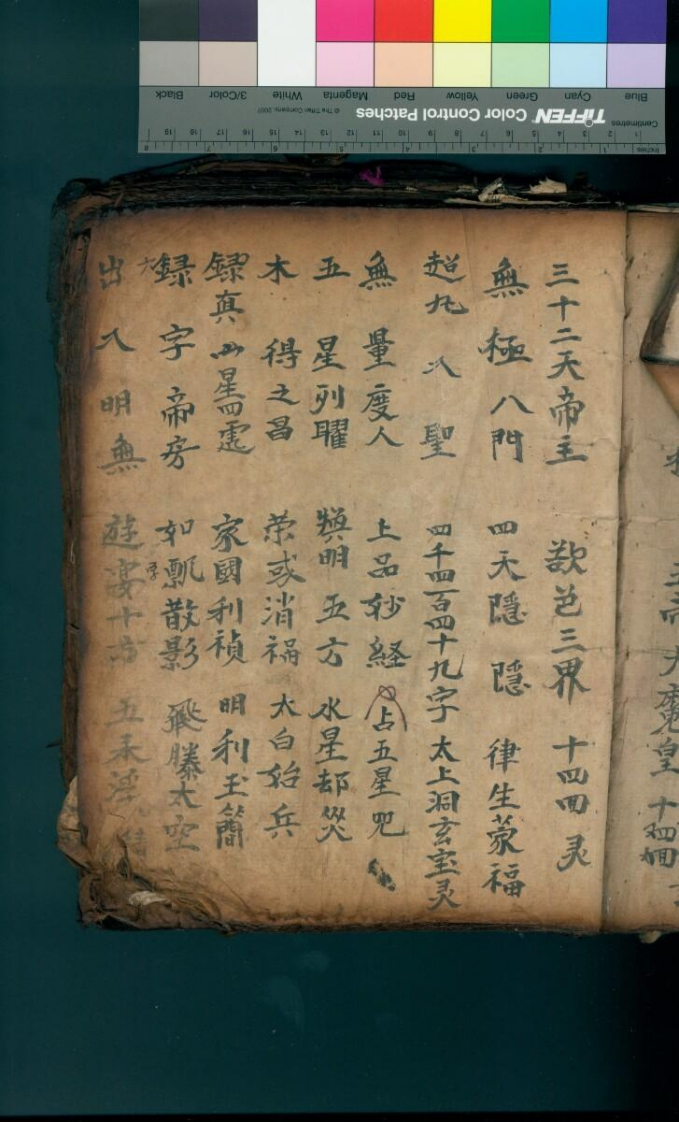 三十二天帝主 欲色三界 十四回灵
無極八門 四天隱隱 律生蒙福
超九 入聖 四千四百四十九字 太上洞玄宝灵
無量度人 上品妙経 占五星咒
五星列曜 煥明五方 水星却災
木 得之昌 荣或消禍 太白始兵
録 真 星 家國利禎 明利玉簡
録字帝房 如飄散影 飛騰太空
出入明無 遊宴十方 五
TIFFEN Color Control Patches
© The Tiffen Company, 2007
Centimetres
Inches
Blue Cyan Green Yellow Red Magenta White 3/Color Black